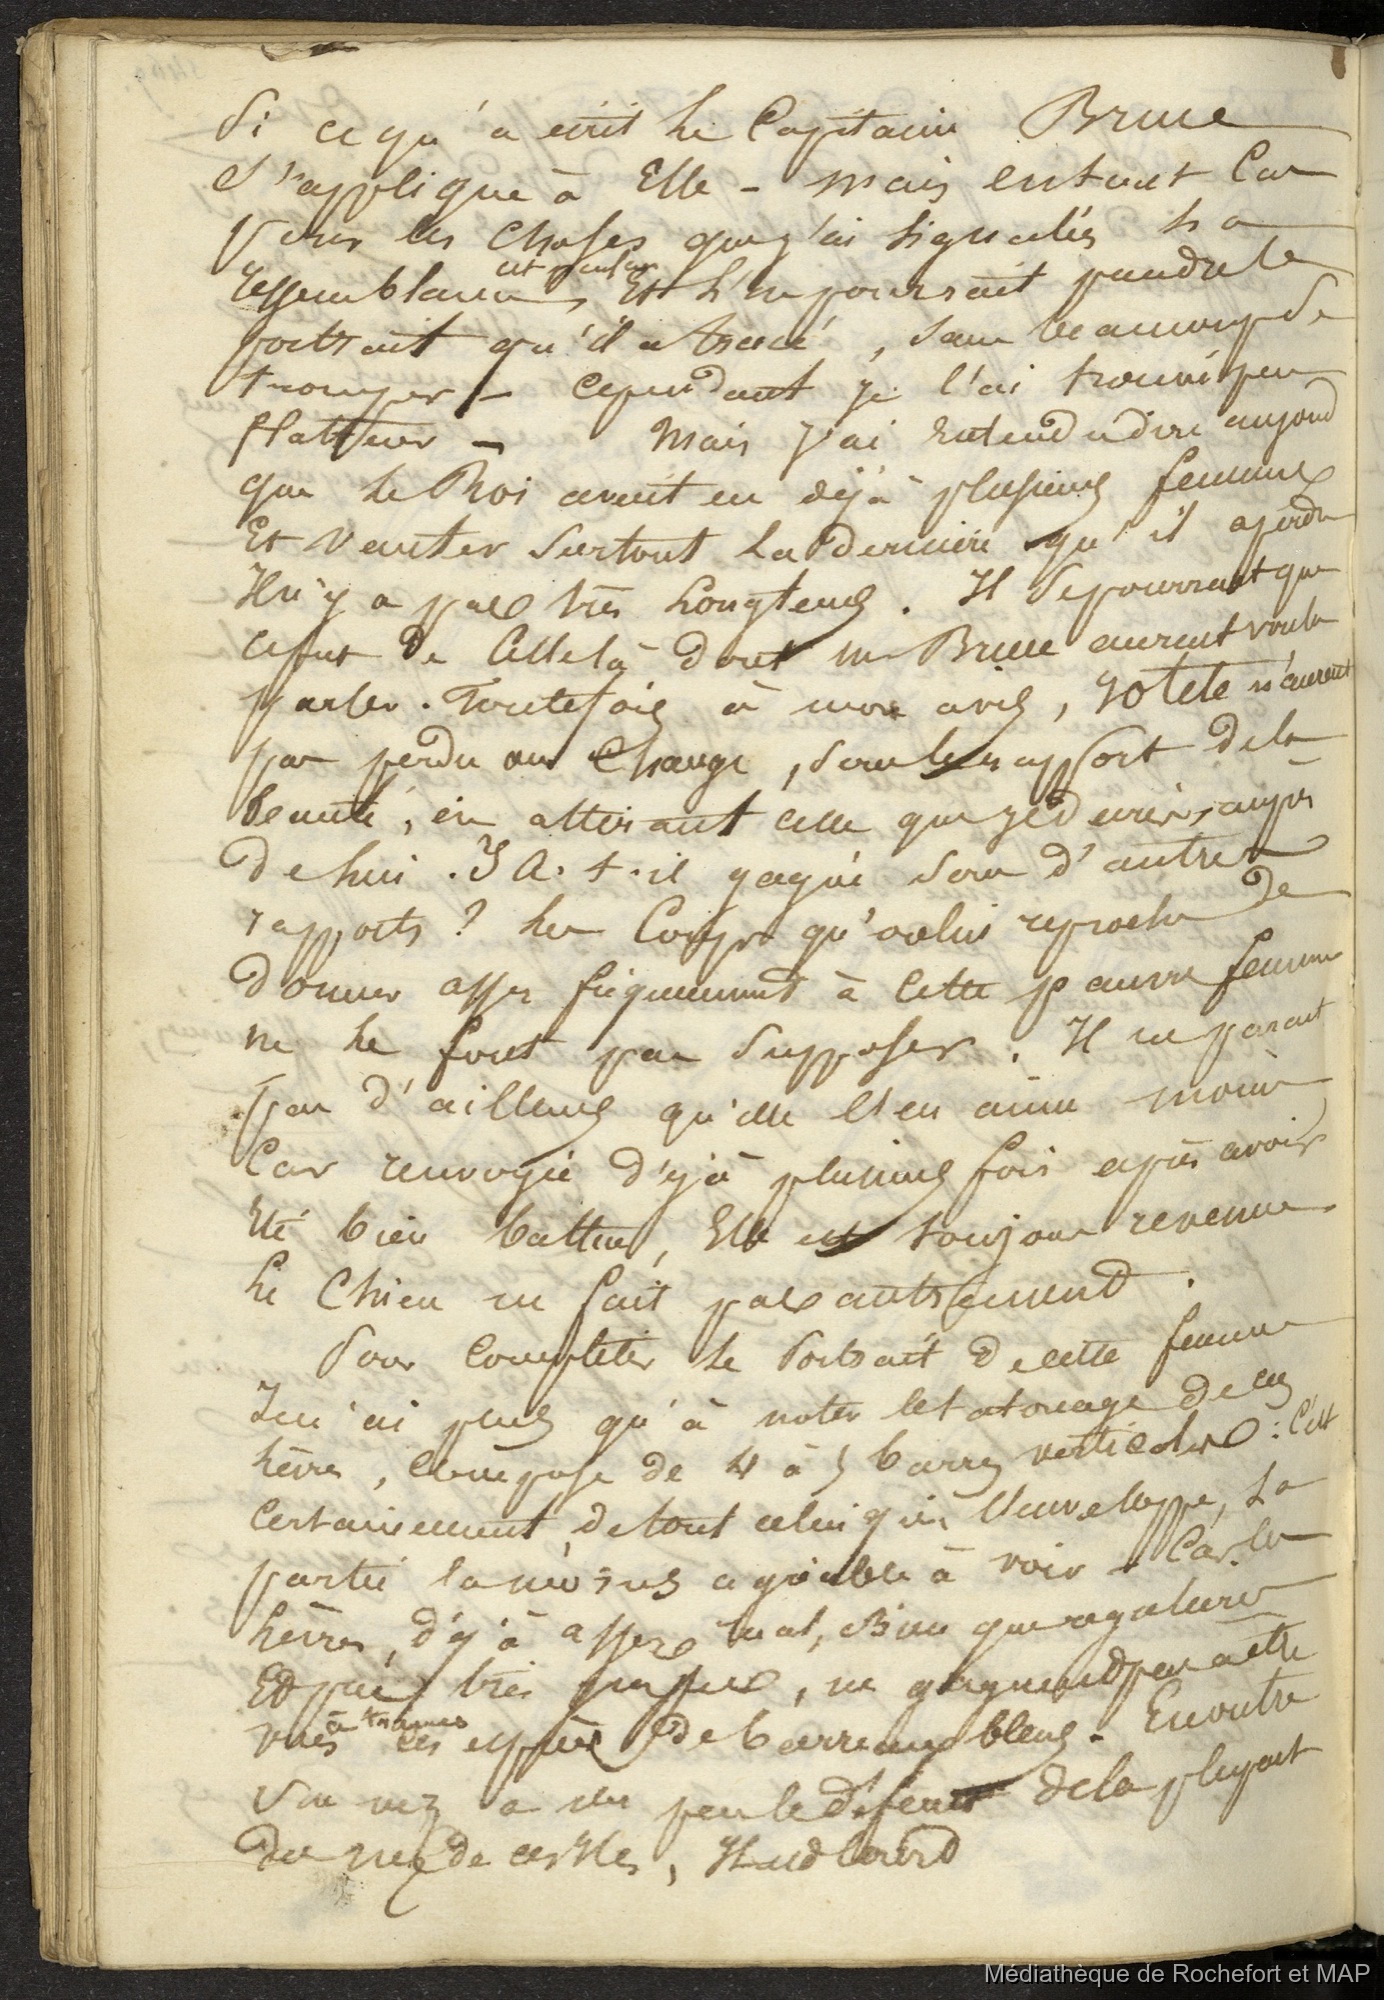 Si ce qu'a écrit le Capitaine Bruce
S'applique à Elle - mais entout Cas
Vous les choses que j'ai signalés la
est parfaite
Ressemblance, Et l'on pourrait prendre le
portrait qu'il a tracé, sans beaucoup se
tromper - cependant je l'ai trouvé peu
flatteur - Mais j'ai entendu dire aujourd
que le Roi avait eu déjà plusieurs femmes
Et vanter surtout la dernière qu'il a perdu
Il n'y a pas très longtems. Il se pourrait que
ce fut de Celle là dont mr Bruce aurait voulu
parler. Toutefois à mon avis, Yotété n'aurait
pas perdu au Change, sous le rapport de la
beauté, en attirant celle que je décrirs, auprès
de lui. Y A-t-il gagné sous d'autres
rapports? les Coups qu'on lui reproche de
donner assez fréquemment à Cette pauvre femme
ne le font pas supposer. Il ne parait
pas d'ailleurs qu'elle l'en aime moins
Car renvoyée d'éjà plusieurs fois après avoir
Eté bien battue, Elle est toujours revenue.
le Chien ne fait pas autrement.
Pour Completer le Portrait de cette femme
Je n'ai plus qu'à noter le tatouage de ses
lèvres, Composé de 4 à 5 barres verticales : C'est
Certainement, de tout celui qui l'enveloppe, la
partie la moins agréable à voir - Car les
lèvres, d'éjà assez mal, Bien que régulières
Et pas très grosses, ne gagnent pas à être
à travers
vues ces espèces de barreaux bleus. En outre
Son nez a un peu le défaut de la plupart
des nez de ces Iles, Il est lourd
Médiathèque de Rochefort et MAP